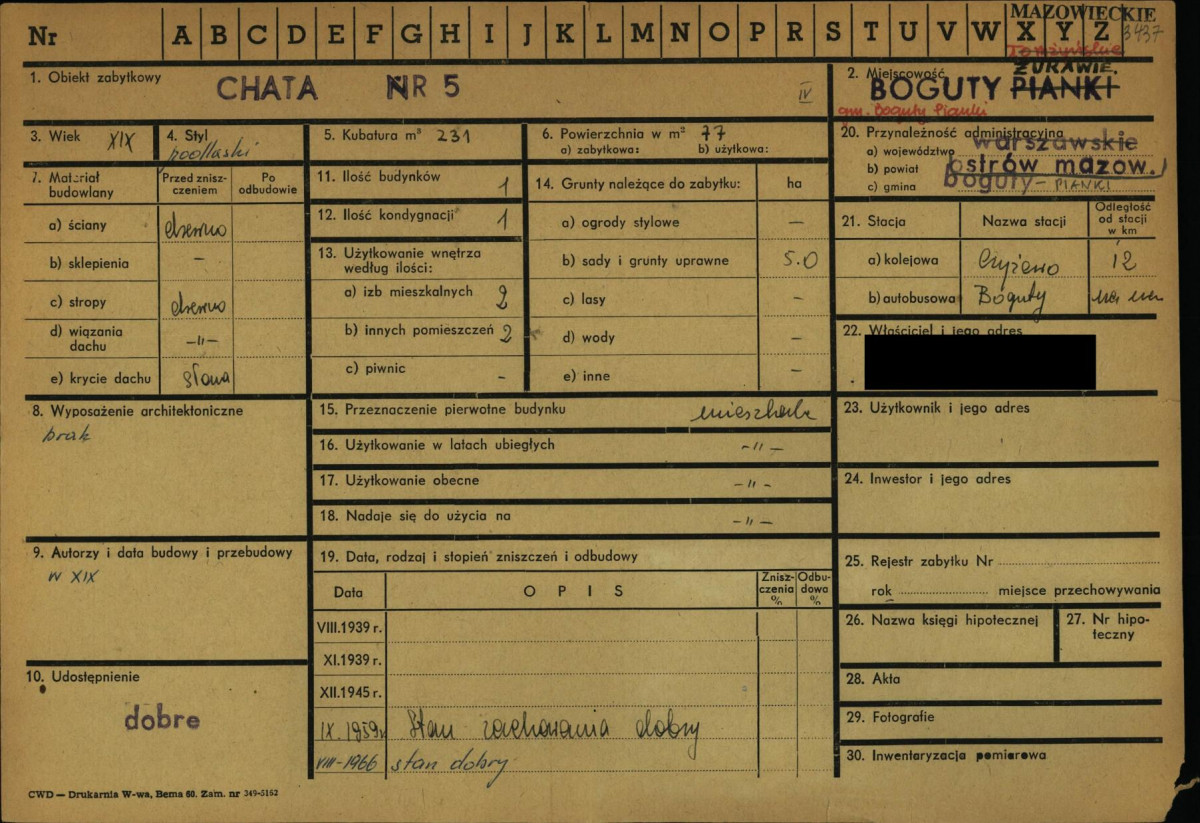 MAZOWIECKIE
Nr A B C D E F G H I J K L M N O P R S T U V W X Y Z 3437
Łomżyńskie
1. Obiekt zabytkowy
CHATA NR 5
IV
2. Miejscowość
ŻURAWIE.
BOGUTY PIANKI
gm. Boguty Pianki
3. Wiek XIX
4. Styl
podlaski
5. Kubatura m³ 231
6. Powierzchnia w m² 77
a) zabytkowa: b) użytkowa:
7. Materiał budowlany
Przed zniszczeniem
Po odbudowie
a) ściany drewno
b) sklepienia –
c) stropy drewno
d) wiązania dachu –„–
e) krycie dachu słoma
8. Wyposażenie architektoniczne
brak
9. Autorzy i data budowy i przebudowy
w XIX
10. Udostępnienie
dobre
11. Ilość budynków 1
12. Ilość kondygnacji 1
13. Użytkowanie wnętrza według ilości:
a) izb mieszkalnych 2
b) innych pomieszczeń 2
c) piwnic -
14. Grunty należące do zabytku: ha
a) ogrody stylowe —
b) sady i grunty uprawne 5.0
c) lasy –
d) wody –
e) inne –
15. Przeznaczenie pierwotne budynku mieszkalne
16. Użytkowanie w latach ubiegłych –„–
17. Użytkowanie obecne –„–
18. Nadaje się do użycia na –„–
19. Data, rodzaj i stopień zniszczeń i odbudowy
Data
O P I S
Zniszczenia %
Odbudowa %
VIII.1939 r.
XI.1939 r.
XII.1945 r.
IX.1959r Stan zachowania dobry
VIII-1966 stan dobry
20. Przynależność administracyjna
a) województwo warszawskie
b) powiat ostrów mazow.
c) gmina boguty – PIANKI
21. Stacja
Nazwa stacji
Odległość od stacji w km
a) kolejowa Czyżewo 12
b) autobusowa Boguty na m
22. Właściciel i jego adres
23. Użytkownik i jego adres
24. Inwestor i jego adres
25. Rejestr zabytku Nr
rok miejsce przechowywania
26. Nazwa księgi hipotecznej
27. Nr hipoteczny
28. Akta
29. Fotografie
30. Inwentaryzacja pomiarowa
CWD — Drukarnia W-wa, Bema 60. Zam. nr 349-5162